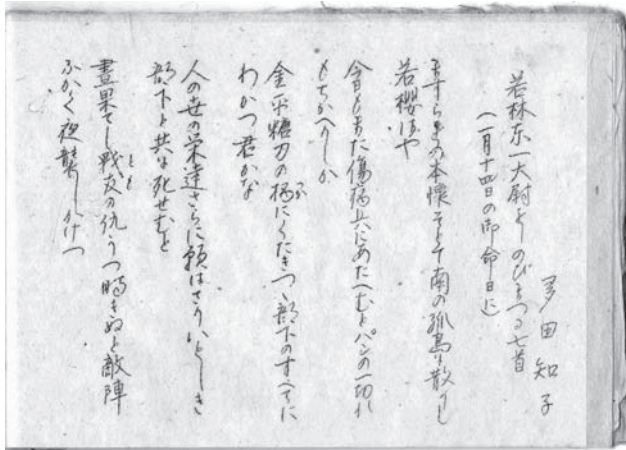 多田知子
若林东一大尉をしのびまつる七首
(一月十四日の御命日に)
ますらをの本懐そとて南の孤島に散りし
若櫻はや
今日もまた傷病兵にあたへむとパンの一切れ
もちかへりしか
金平糖刀の柄にくだきつゝ部下のすべてに
わかつ君かな
人の世の栄達さらに願はざりいとしき
部下と共に死せむと
晝果てし戦友の仇うつ時きぬと敵陣
とも
ふかく夜襲しかけつ